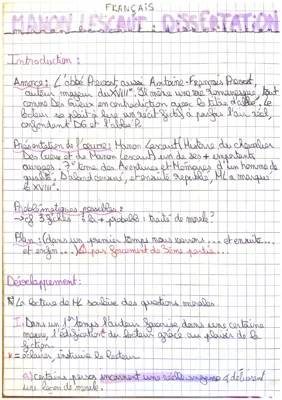 FRANÇAIS
MANON LESCAUT DISSERTATION
Introduction :
Amorce : L'abbé Prévost, aussi Antoine-François Prévost,
auteur majeur du XVIIIe. Il mène une vie romanesque, tout
comme Des Grieux en contradiction avec le titre d'abbé. Le
lecteur se plaît à lire un récit fictif à parfum
Présentation de l'œuvre : Manon Lescaut (Histoire du chevalier
Des Grieux et de Manon Lescaut) un de ses + importants
ouvrages. tome des Aventures et Mémoires d'un homme de
qualité. D'abord censuré, et ensuite republié, ML a marqué
le XVIIIe.
Problématiques possibles :
→ cf 3 fiches la + probable : traité de morale ?
Plan : (dans un premier temps nous verrons ... et ensuite...
et enfin ...) ⚠ pas forcément de 3ème partie...
Développement :
La lecture de ML soulève des questions morales
I. Dans un 1er temps l'auteur favorise dans une certaine
mesure, l'édification du lecteur grâce aux plaisirs de la
fiction.
* = éclairer, instruire le lecteur
a) certains persos incarnent une réelle & délivrent
une leçon de morale.